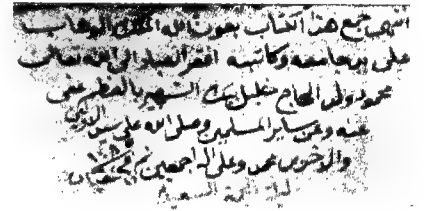 انتهى جمع هذا الكتاب بعون الله الملك الوهاب
على يد جامعه وكاتبه افقر العباد الى الله تعالى
محمود ولد الحاج خليل بيك الشهير بالعظم عفى
عنه وعن ساير المسلمين وصلى الله على سيد الاولين
والاخرين محمد وعلى اله اجمعين تم في
ليلة الجمعة